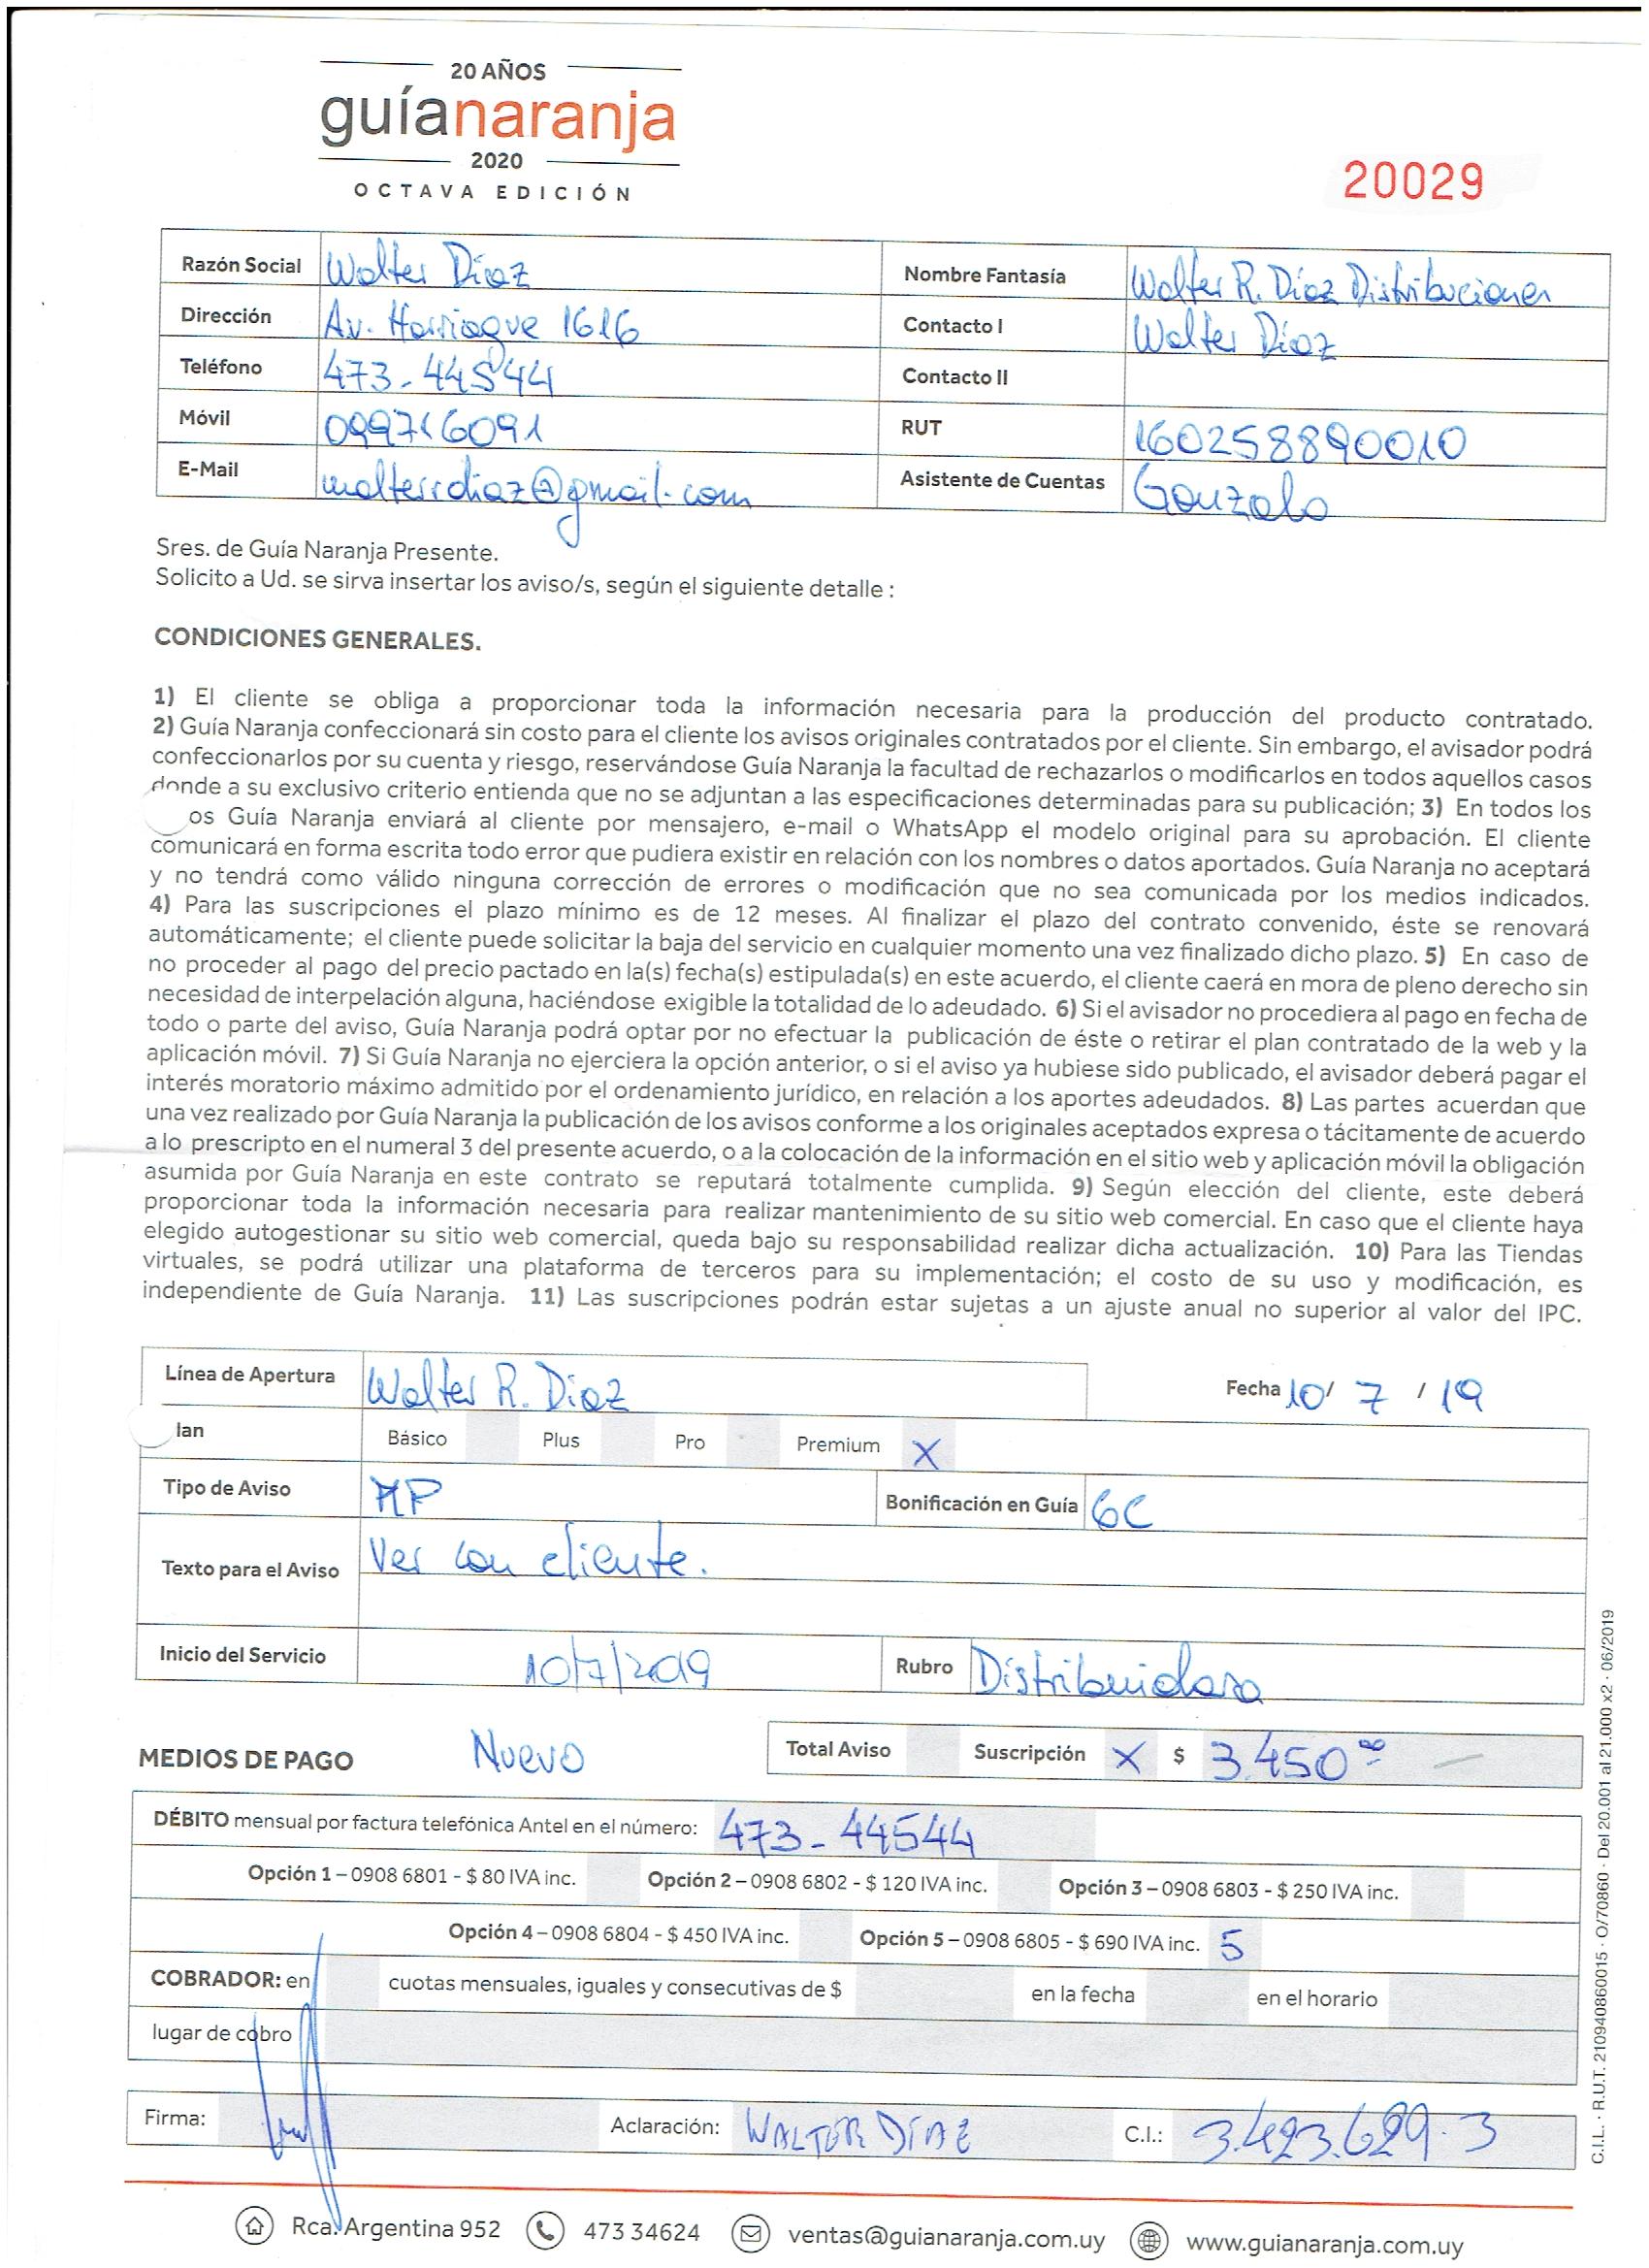 20 AÑOS
guíanaranja
2020
OCTAVA EDICIÓN
20029
Razón Social Walter Díaz Nombre Fantasía Walter R. Díaz Distribuciones
Dirección Av. Harriague 1616 Contacto I Walter Díaz
Teléfono 473-44544 Contacto II
Móvil 099716091 RUT 160258890010
E-Mail walterrdiaz@gmail.com Asistente de Cuentas Gonzalo
Sres. de Guía Naranja Presente.
Solicito a Ud. se sirva insertar los aviso/s, según el siguiente detalle :
CONDICIONES GENERALES.
1) El cliente se obliga a proporcionar toda la información necesaria para la producción del producto contratado.
2) Guía Naranja confeccionará sin costo para el cliente los avisos originales contratados por el cliente. Sin embargo, el avisador podrá
confeccionarlos por su cuenta y riesgo, reservándose Guía Naranja la facultad de rechazarlos o modificarlos en todos aquellos casos
donde a su exclusivo criterio entienda que no se adjuntan a las especificaciones determinadas para su publicación; 3) En todos los
os Guía Naranja enviará al cliente por mensajero, e-mail o WhatsApp el modelo original para su aprobación. El cliente
comunicará en forma escrita todo error que pudiera existir en relación con los nombres o datos aportados. Guía Naranja no aceptará
y no tendrá como válido ninguna corrección de errores o modificación que no sea comunicada por los medios indicados.
4) Para las suscripciones el plazo mínimo es de 12 meses. Al finalizar el plazo del contrato convenido, éste se renovará
automáticamente; el cliente puede solicitar la baja del servicio en cualquier momento una vez finalizado dicho plazo. 5) En caso de
no proceder al pago del precio pactado en la(s) fecha(s) estipulada(s) en este acuerdo, el cliente caerá en mora de pleno derecho sin
necesidad de interpelación alguna, haciéndose exigible la totalidad de lo adeudado. 6) Si el avisador no procediera al pago en fecha de
todo o parte del aviso, Guía Naranja podrá optar por no efectuar la publicación de éste o retirar el plan contratado de la web y la
aplicación móvil. 7) Si Guía Naranja no ejerciera la opción anterior, o si el aviso ya hubiese sido publicado, el avisador deberá pagar el
interés moratorio máximo admitido por el ordenamiento jurídico, en relación a los aportes adeudados. 8) Las partes acuerdan que
una vez realizado por Guía Naranja la publicación de los avisos conforme a los originales aceptados expresa o tácitamente de acuerdo
a lo prescripto en el numeral 3 del presente acuerdo, o a la colocación de la información en el sitio web y aplicación móvil la obligación
asumida por Guía Naranja en este contrato se reputará totalmente cumplida. 9) Según elección del cliente, este deberá
proporcionar toda la información necesaria para realizar mantenimiento de su sitio web comercial. En caso que el cliente haya
elegido autogestionar su sitio web comercial, queda bajo su responsabilidad realizar dicha actualización. 10) Para las Tiendas
virtuales, se podrá utilizar una plataforma de terceros para su implementación; el costo de su uso y modificación, es
independiente de Guía Naranja. 11) Las suscripciones podrán estar sujetas a un ajuste anual no superior al valor del IPC.
Línea de Apertura Walter R. Díaz Fecha 10/ 7 / 19
lan Básico Plus Pro Premium X
Tipo de Aviso MP Bonificación en Guía 6C
Texto para el Aviso Ver con cliente.
Inicio del Servicio 10/7/2019 Rubro Distribuidora
MEDIOS DE PAGO Nuevo Total Aviso Suscripción X $ 3.450 00
DÉBITO mensual por factura telefónica Antel en el número: 473-44544
Opción 1 – 0908 6801 - $ 80 IVA inc. Opción 2 – 0908 6802 - $ 120 IVA inc. Opción 3 – 0908 6803 - $ 250 IVA inc.
Opción 4 – 0908 6804 - $ 450 IVA inc. Opción 5 – 0908 6805 - $ 690 IVA inc. 5
COBRADOR: en cuotas mensuales, iguales y consecutivas de $ en la fecha en el horario
lugar de cobro
Firma: Aclaración: WALTER DÍAZ C.I.: 3.423.629-3
Rca. Argentina 952 473 34624 ventas@guianaranja.com.uy www.guianaranja.com.uy
C.I.L. · R.U.T. 210940860015 · O/70860 · Del 20.001 al 21.000 x2 · 06/2019